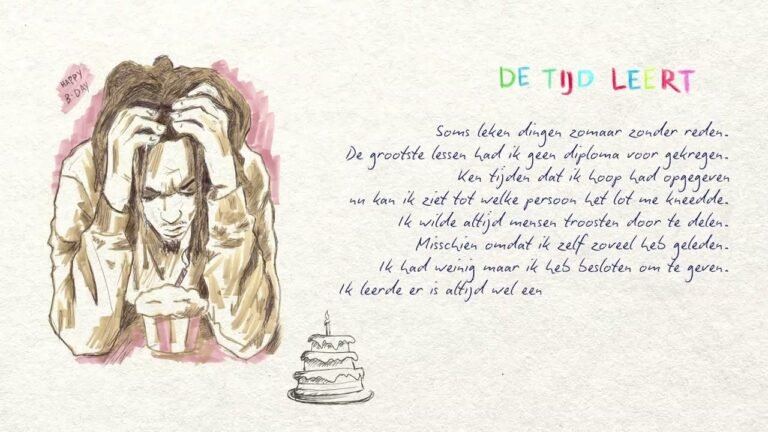 HAPPY
B-DAY
DE TIJD LEERT
Soms leken dingen zomaar zonder reden.
De grootste lessen had ik geen diploma voor gekregen.
Ken tijden dat ik hoop had opgegeven
nu kan ik ziet tot welke persoon het lot me kneedde.
Ik wilde altijd mensen troosten door te delen.
Misschien omdat ik zelf zoveel heb geleden.
Ik had weinig maar ik heb besloten om te geven.
Ik leerde er is altijd wel een